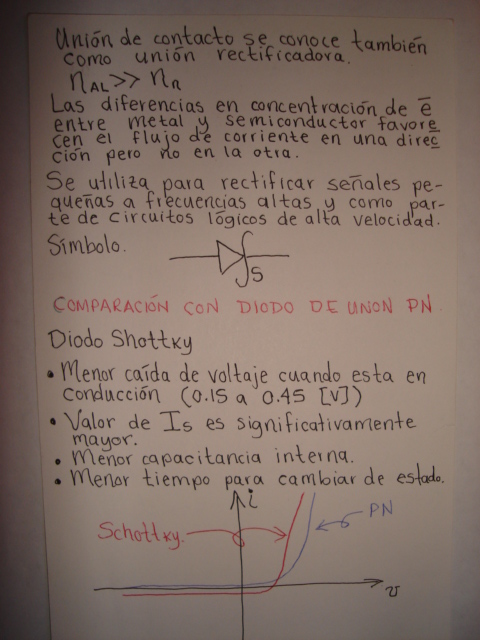 Unión de contacto se conoce también
como unión rectificadora.
nAL >> nn
Las diferencias en concentración de e̅
entre metal y semiconductor favore
cen el flujo de corriente en una direc
ción pero no en la otra.
Se utiliza para rectificar señales pe-
queñas a frecuencias altas y como par-
te de circuitos lógicos de alta velocidad.
Símbolo.
S
COMPARACIÓN CON DIODO DE UNON PN.
Diodo Shottky
• Menor caída de voltaje cuando esta en
conducción (0.15 a 0.45 [V])
• Valor de Is es significativamente
mayor.
• Menor capacitancia interna.
• Menor tiempo para cambiar de estado.
i
Schottky.
PN
v